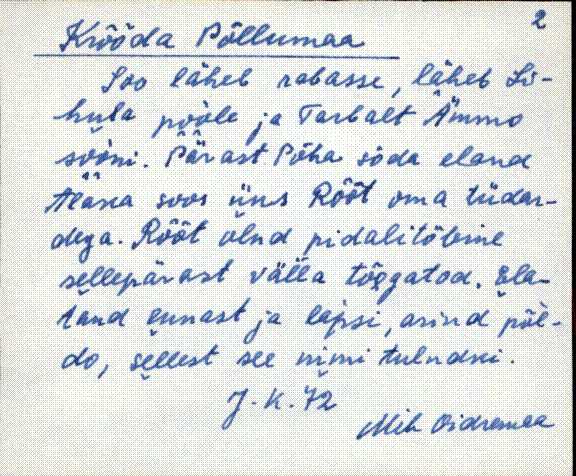 2
Krõõda Põllumaa
Soo läheb rabasse, läheb Li-
hula poole ja Tarbalt Ämmo
sööni. Pärast Põha sõda eland
soos üks Rööt oma tüdar-
dega. Rööt olnd pidalitõbine
sellepärast välla tõggatod. Ela-
tand ennast ja lapsi, arind põl-
do, sellest see nimi tulndki.
J. K. 72
Mih Oidremaa